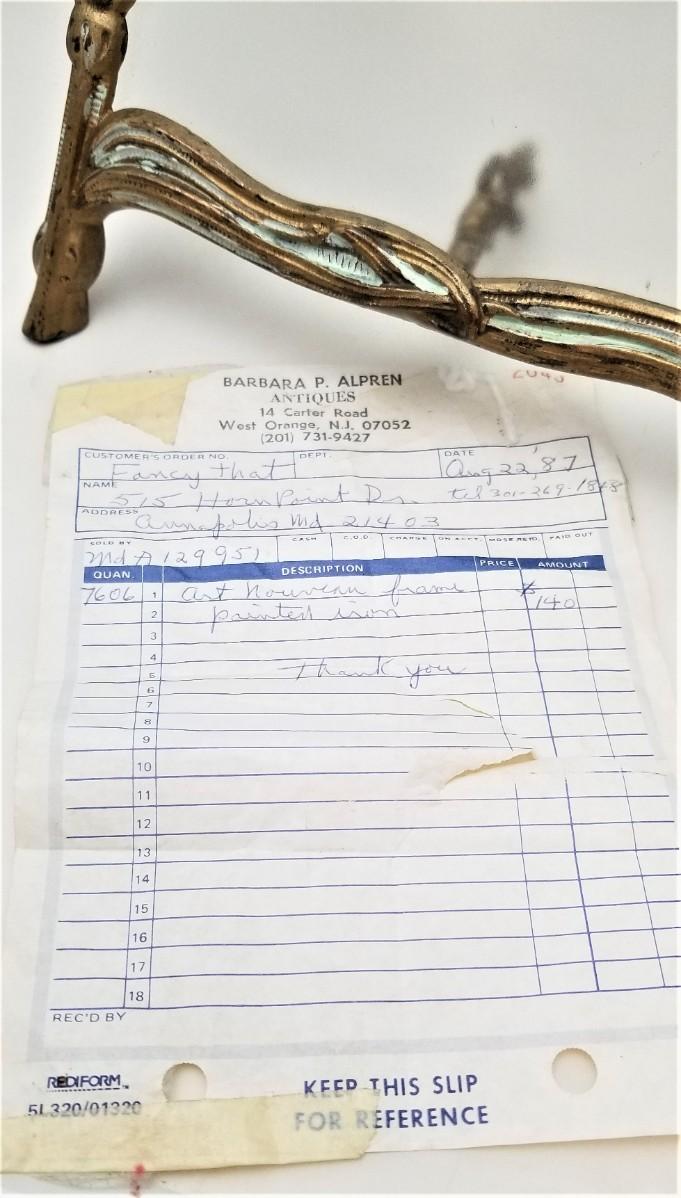 BARBARA P. ALPREN
ANTIQUES
14 Carter Road
West Orange, N.J. 07052
(201) 731-9427
CUSTOMER'S ORDER NO. DEPT. DATE
Fancy that Aug 22, '87
NAME
515 Horn Point Dr. tel 301-269-1848
ADDRESS
Annapolis Md 21403
SOLD BY CASH C.O.D. CHARGE ON ACCT. MDSE RETD. PAID OUT
Md A 129951
QUAN. DESCRIPTION PRICE AMOUNT
7606 1 art nouveau frame $
2 painted iron 140
3
4
5 Thank you
6
7
8
9
10
11
12
13
14
15
16
17
18
REC'D BY
REDIFORM
5L320/01320
KEEP THIS SLIP
FOR REFERENCE